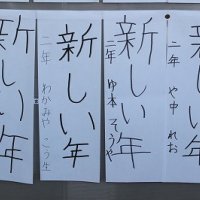 新しい年
二年 や中 れお
新しい年
二年 ゆ本 そうや
新しい年
二年 わかみや こう生
新しい年